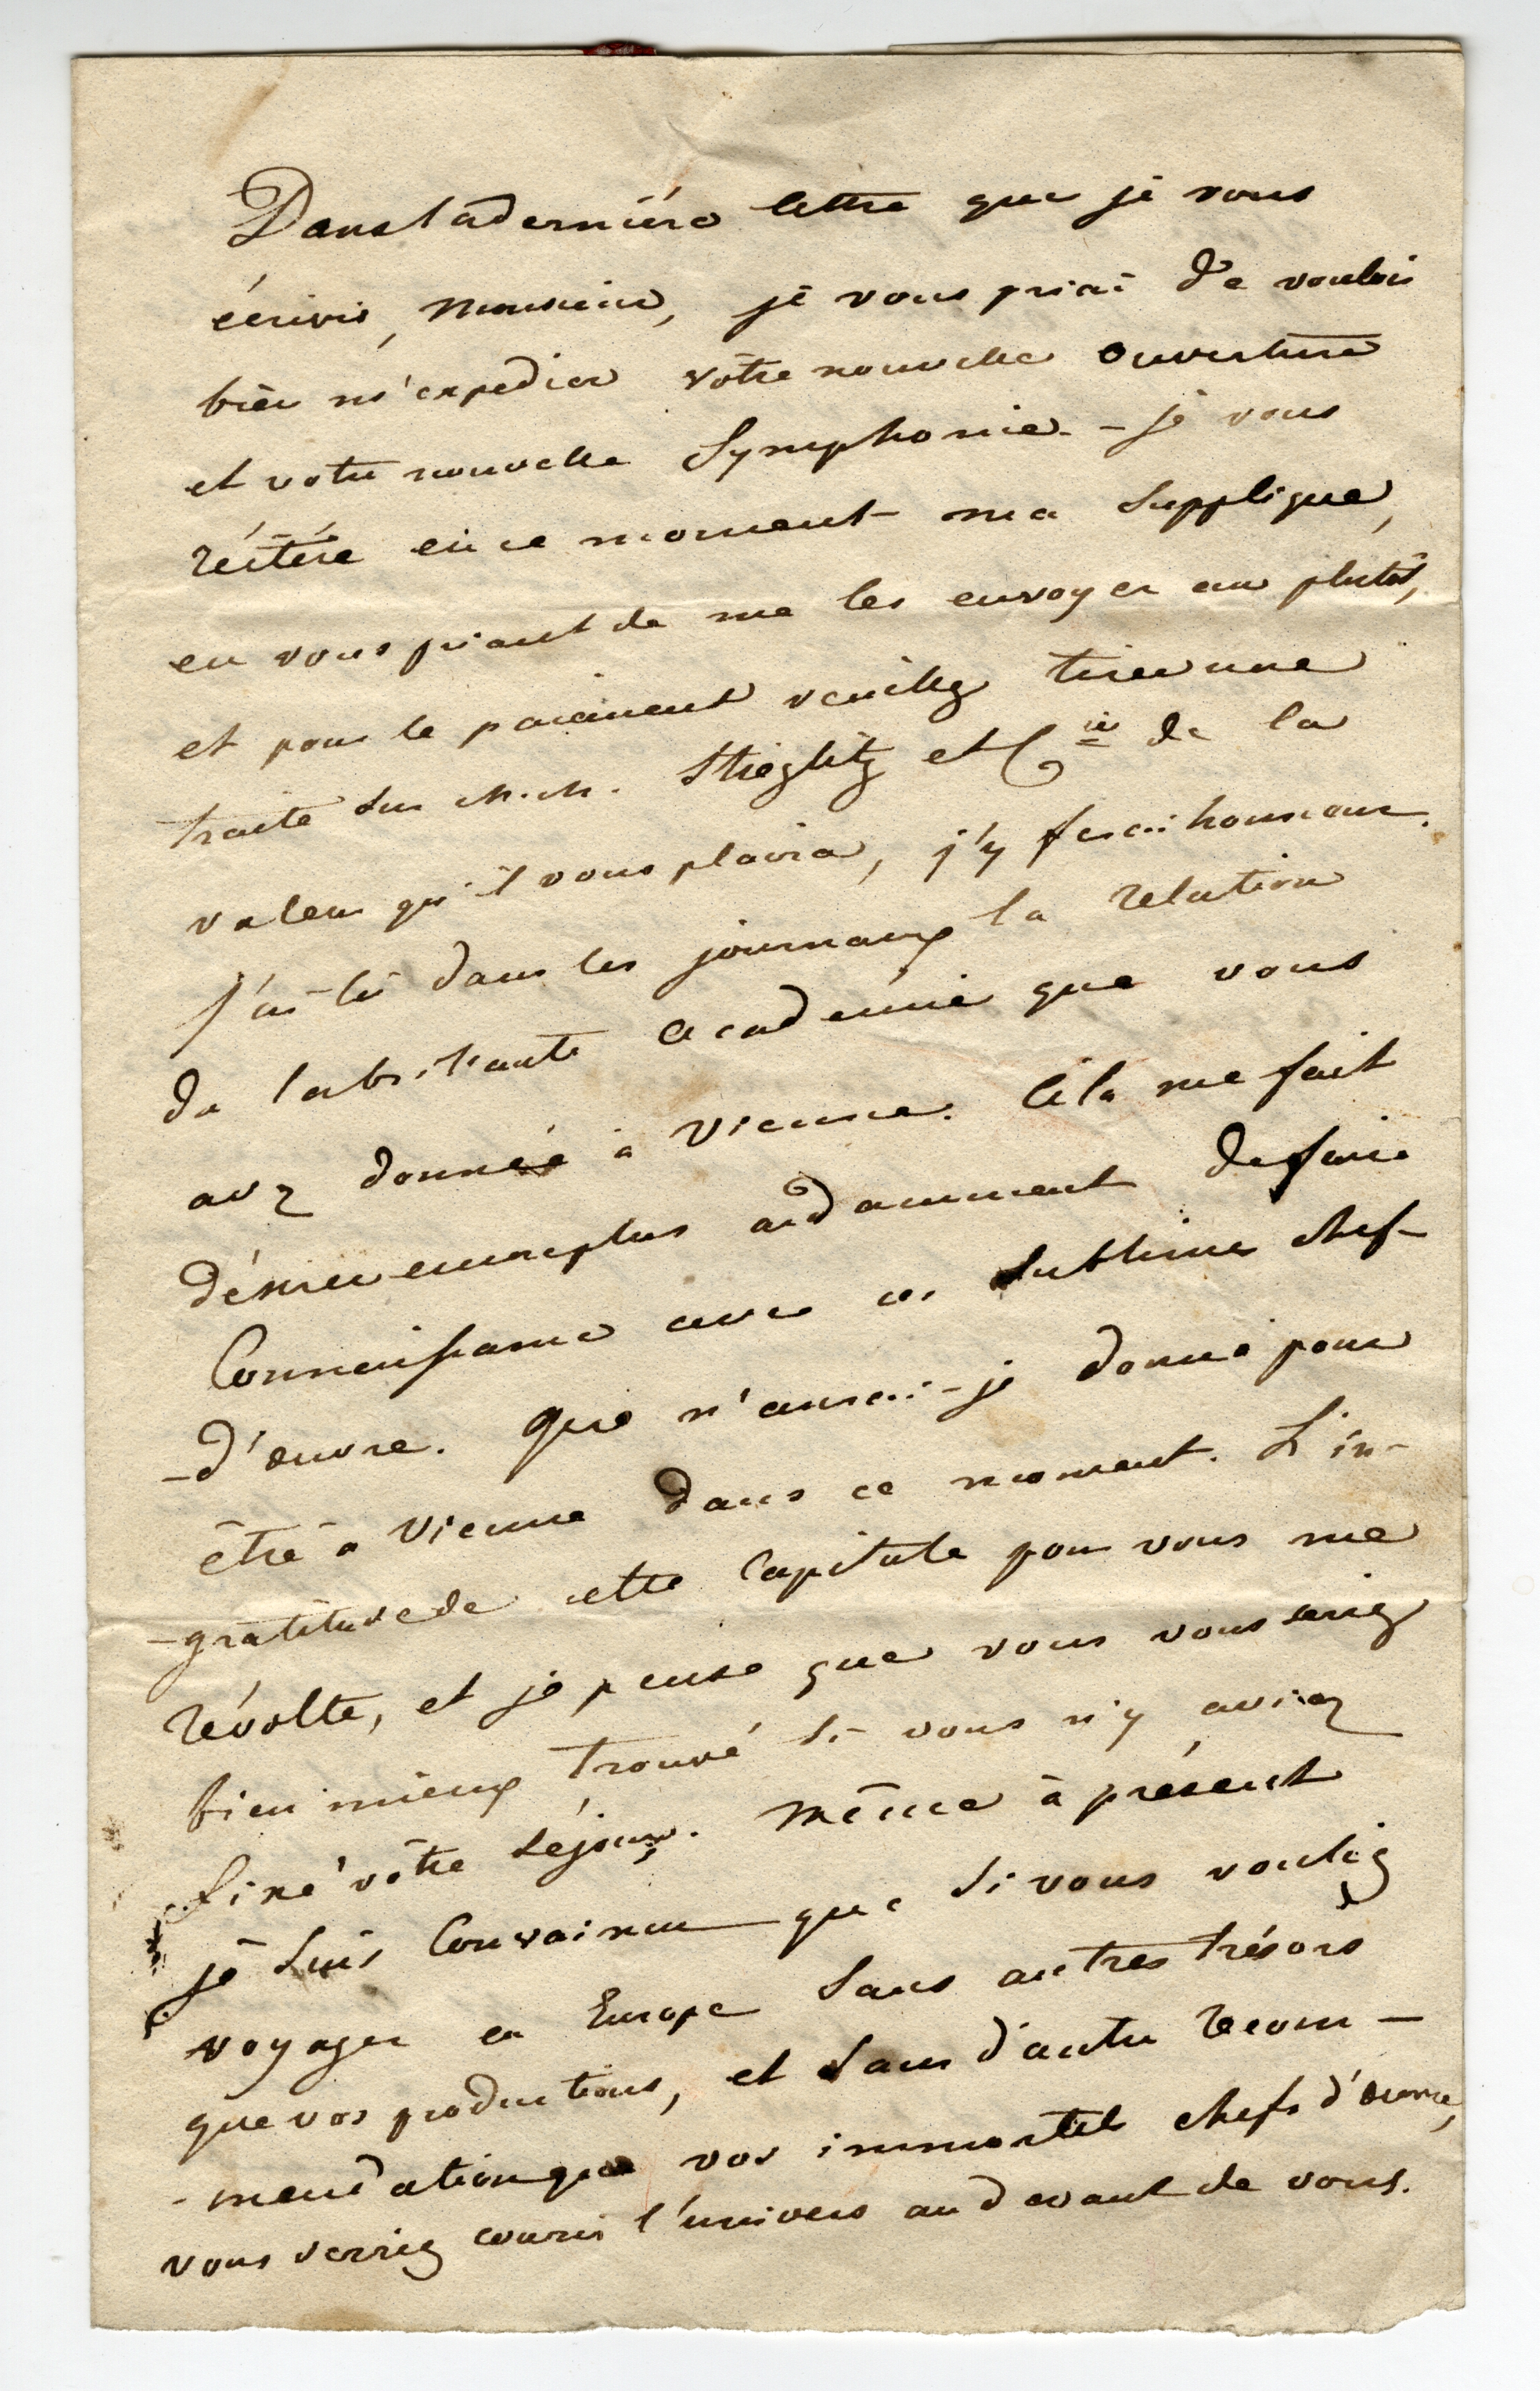 Dans la derniére lettre que je vous
écrivis, Monsieur, je vous priai de vouloir
bien m'expedier vôtre nouvelle Ouverture
et votre nouvelle Symphonie. - je vous
réitére en ce moment ma supplique,
en vous priant de me les envoyer au plutôt,
et pour le paiement veuillez tirer une
traite sur M.M. Stieglitz et Cie de la
valeur qu'il vous plaira, j'y ferai honneur.
J'ai lû dans les journaux la relation
de la brillante académie que vous
avez donnée à Vienne. Céla me fait
désirer encore plus ardamment de faire
Connaissance avec ces sublimes chef-
-d'euvre. Que n'aurai-je donné pour
être à Vienne dans ce moment. L'in-
-gratitude de cette Capitale pour vous me
révolte, et je pense que vous vous seriez
bien mieux trouvé si vous n'y aviez
fixé vôtre séjour. Même à présent
je suis Convaincu que si vous vouliez
voyager en Europe sans autres trésors
que vos productions, et sans d'autre recom-
-mendation que vos immortels chefs d'euvre,
vous verriez courir l'univers au devant de vous.